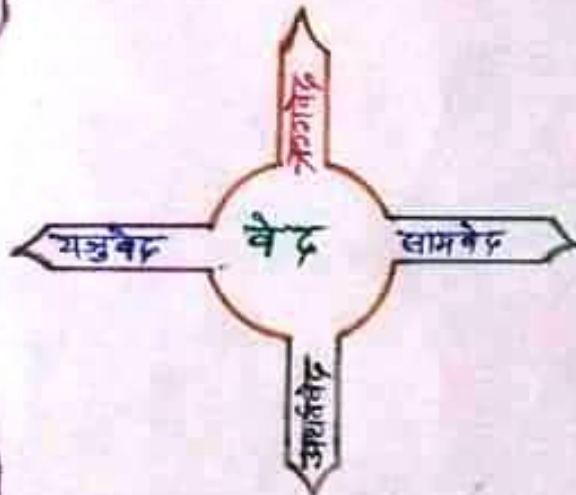 ऋग्वेद
यजुवेद
वेद
सामवेद
अथर्ववेद